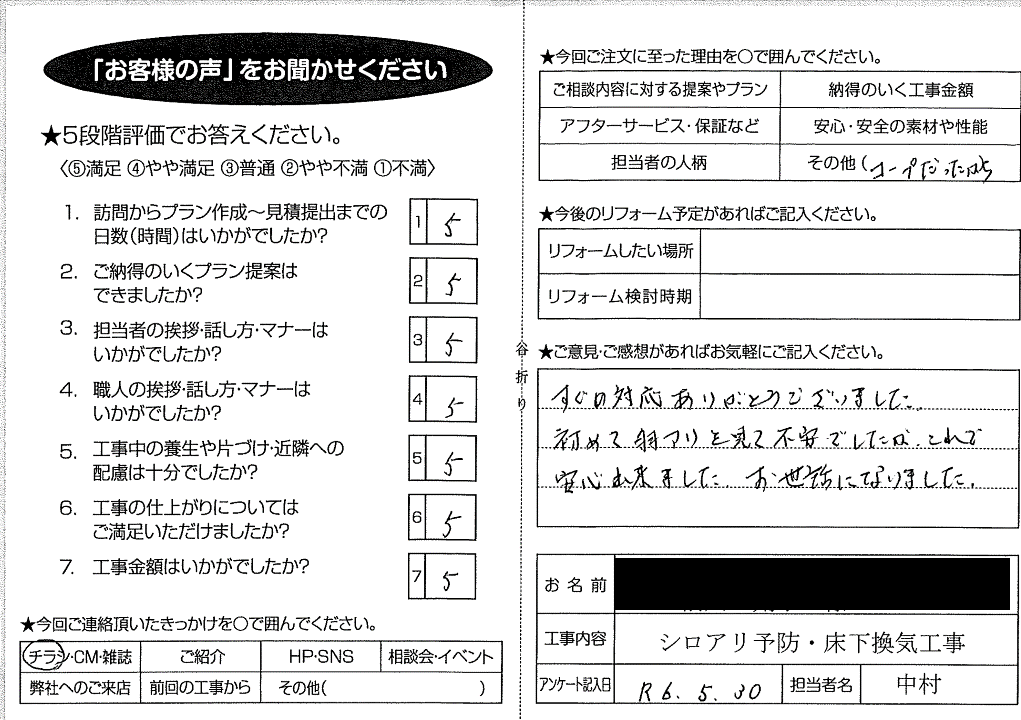 「お客様の声」をお聞かせください
★5段階評価でお答えください。
〈⑤満足 ④やや満足 ③普通 ②やや不満 ①不満〉
1. 訪問からプラン作成～見積提出までの
日数(時間)はいかがでしたか?
1 5
2. ご納得のいくプラン提案は
できましたか?
2 5
3. 担当者の挨拶・話し方・マナーは
いかがでしたか?
3 5
4. 職人の挨拶・話し方・マナーは
いかがでしたか?
4 5
5. 工事中の養生や片づけ・近隣への
配慮は十分でしたか?
5 5
6. 工事の仕上がりについては
ご満足いただけましたか?
6 5
7. 工事金額はいかがでしたか?
7 5
★今回ご連絡頂いたきっかけを○で囲んでください。
チラシ・CM・雑誌 ご紹介 HP・SNS 相談会・イベント
弊社へのご来店 前回の工事から その他( )
谷折り
★今回ご注文に至った理由を○で囲んでください。
ご相談内容に対する提案やプラン 納得のいく工事金額
アフターサービス・保証など 安心・安全の素材や性能
担当者の人柄 その他(コープだったから
★今後のリフォーム予定があればご記入ください。
リフォームしたい場所
リフォーム検討時期
★ご意見・ご感想があればお気軽にご記入ください。
すぐの対応ありがとうございました。
初めて羽アリを見て不安でしたが、これで
安心出来ました お世話になりました。
お名前
工事内容 シロアリ予防・床下換気工事
アンケート記入日 R6.5.30 担当者名 中村